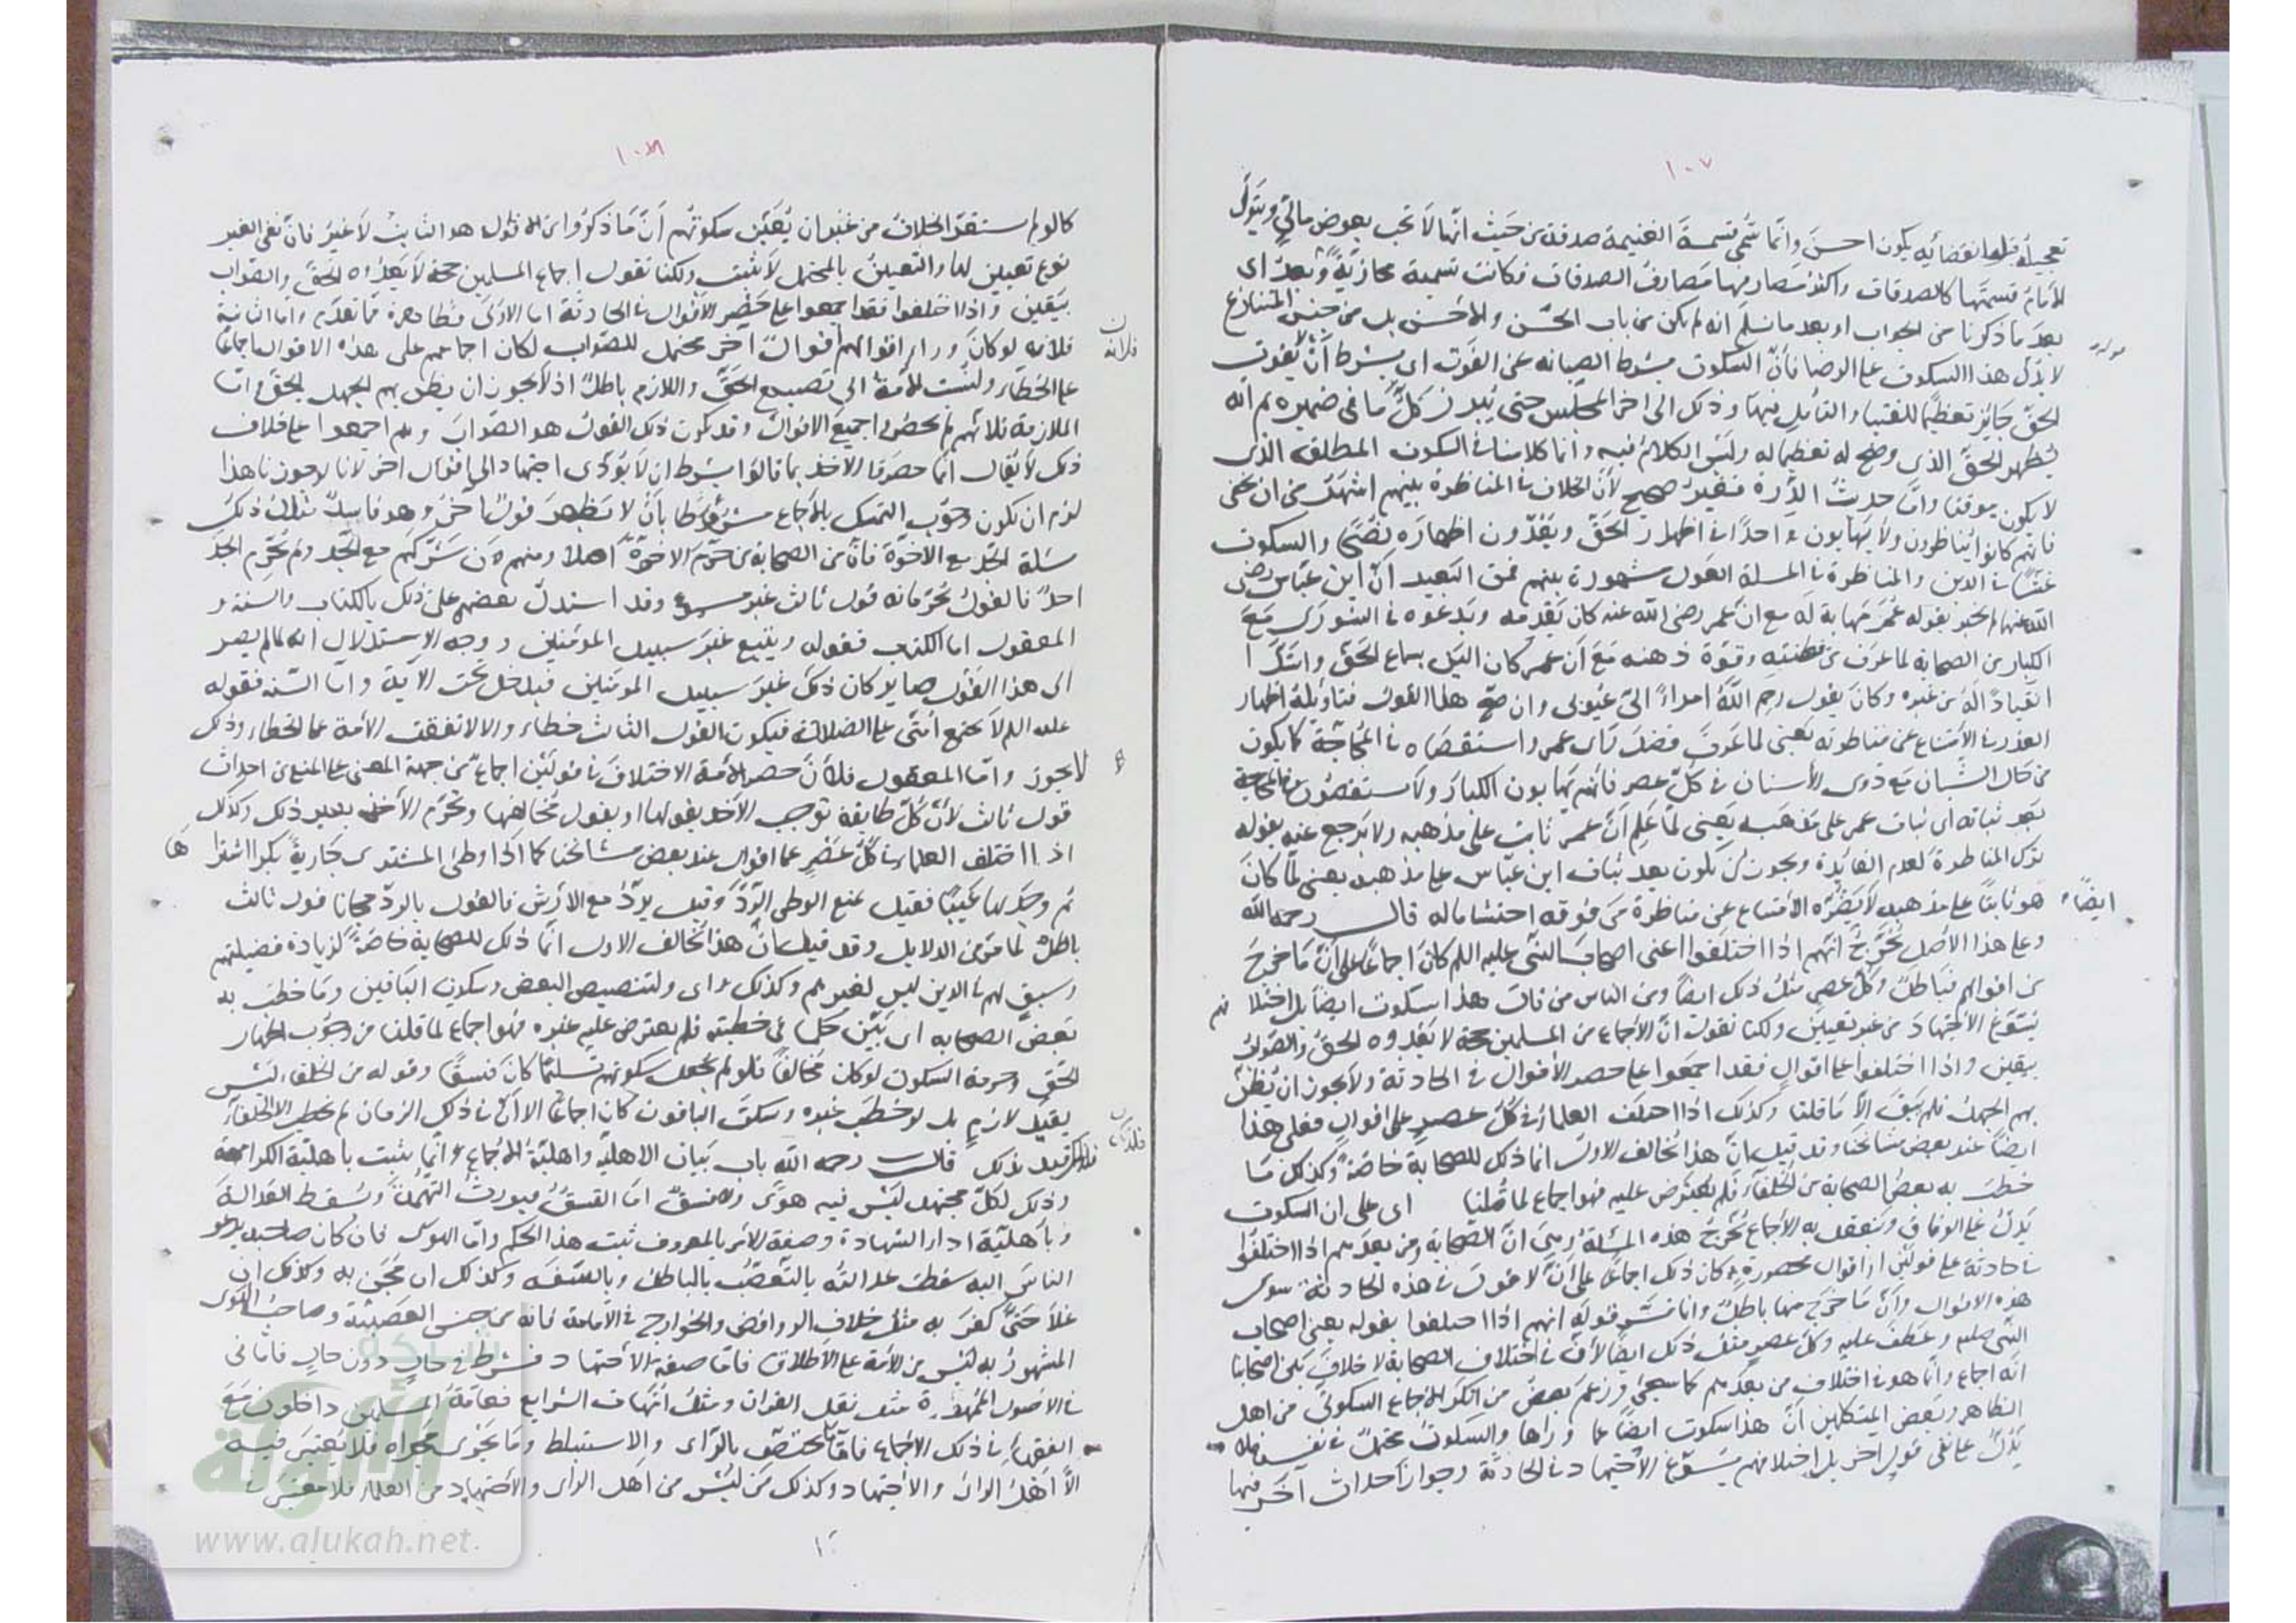 ١٠٧
تعجيله قبل انقضائه يكون احسن وانما سمى قسمة الغنيمة صدقة من حيث انها لا تجب بعوض مالي ويتولى
الامام قسمتها كالصدقات واكثر مصارفها مصارف الصدقات فكانت تسمية مجازية وبعد اى
بعد ما ذكرنا من الجواب او بعد ما نسلم انه لم يكن من باب الحسن والاحسن بل من جنس المتنازع
لا يدل هذا السكوت على الرضا فان السكوت بشرط الصيانة عن الفوت اى بشرط ان لا يفوت
الحق جايز تعظيما للفتيا والتأمل فيها وذلك الى اخر المجلس حتى يبدو كل ما في ضميره ثم انه
يظهر الحق الذى وضح له تعظيما له وليس الكلام فيه وانما كلامنا في السكوت المطلق الذى
لا يكون موقتا واما حديث الدرة فغير صحيح لان الخلاف في المناظرة بينهم اشهر من ان يخفى
فانهم كانوا يناظرون ولا يهابون احدا في اظهار الحق ويعدون اظهاره نصحا والسكوت
غشا في الدين والمناظرة في المسلة العول مشهورة بينهم فمن البعيد ان ابن عباس رضى
الله عنهما لم يخبر بقوله عمر مهابة له مع ان عمر رضى الله عنه كان يقدمه ويدعوه في الشورى مع
الكبار من الصحابة لما عرف من فطنته وقوة ذهنه مع ان عمر كان الين بسماع الحق واشد
انقيادا له من غيره وكان يقول رحم الله امراء اهدى الى عيوبى وان صح هذا القول فتأويله اظهار
العذر في الامتناع عن مناظرته يعنى لما عرف فضل راى عمر واستقصاه في المحاجة كما يكون
من حال الشبان مع ذوى الاسنان في كل عصر فانهم يهابون الكبار ولا يستقصون في المحاجة
بعد ثباته اى ثبات عمر على مذهبه يعنى لما علم ان عمر ثابت على مذهبه ولا يرجع عنه بقوله
ترك المناظرة لعدم الفايدة ويجوز ان يكون بعد ثبات ابن عباس على مذهبه يعنى لما كان
ايضا
هو ثابتا على مذهبه لا يضره الامتناع عن مناظرة من فوقه احتشاما له قال رحمه الله
وعلى هذا الاصل يخرج انهم اذا اختلفوا اعنى اصحاب النبى عليه السلم كان اجماعا على ان ما خرج
من اقوالهم فباطل وكل عصر مثل ذلك ايضا ومن الناس من قال هذا سكوت ايضا بل اختلافهم
يسوغ الاجتهاد من غير تعيين ولكنا نقول ان الاجماع من المسلمين حجة لا يعدوه الحق والصواب
بيقين واذا اختلفوا على اقوال فقد اجمعوا على حصر الاقوال في الحادثة ولا يجوز ان يظن
بهم الجهل فلم يبق الا ما قلنا وكذلك اذا اختلف العلماء في كل عصر على اقوال فعلى هذا
ايضا عند بعض مشايخنا وقد قيل ان هذا بخالف الاول انما ذلك للصحابة خاصة وكذلك ما
خطب به بعض الصحابة من الخلفاء فلم يعترض عليه فهو اجماع لما قلنا اى على ان السكوت
يدل على الوفاق وينعقد به الاجماع تخرج هذه المسئلة وهى ان الصحابة ومن بعدهم اذا اختلفوا
في حادثة على قولين او اقوال محصورة كان ذلك اجماعا على انه لا قول في هذه الحادثة سوى
هذه الاقوال وان ما خرج منها باطل وانما فسر قوله انهم اذا اختلفوا بقوله يعنى اصحاب
النبى صلم وعطف عليه وكل عصر مثل ذلك ايضا لان في اختلاف الصحابة لا خلاف بين اصحابنا
انه اجماع وانما هو في اختلاف من بعدهم كما سيجئ وزعم بعض من انكر الاجماع السكوتى من اهل
الظاهر وبعض المتكلمين ان هذا سكوت ايضا عما وراها والسكوت محتمل في نفسه فلا
يدل على نفى قول اخر بل اختلافهم يسوغ الاجتهاد في الحادثة وجواز احداث آخر فيها
١٠٨
كما لو لم يستقر الخلاف من غير ان يعين سكوتهم ان ما ذكروا من الاقوال هو الثابت لا غير فان نفى الغير
نوع تعيين لها والتعيين بالمحتمل لا يثبت ولكنا نقول اجماع المسلمين حجة لا يعدوه الحق والصواب
بيقين واذا اختلفوا فقد اجمعوا على حصر الاقوال في الحادثة اما الاولى فظاهرة مما تقدم واما الثانية
فلانه لو كان وراء اقوالهم قول اخر محتمل للصواب لكان اجماعهم على هذه الاقوال اجماعا
على الخطاء ولنسب الامة الى تضييع الحق واللازم باطل اذ لا يجوز ان يظن بهم الجهل بالحق واما
الملازمة فلانهم لم يحضروا جميع الاقوال وقد يكون ذلك القول هو الصواب ولم اجمعوا على خلاف
ذلك لا يقال انما حصروا الاخذ بما قالوا بشرط ان لا يؤدى اجتهاد الى قول اخر لانا لو جوزنا هذا
لزم ان يكون وجوب التمسك بالاجماع مشروطا بان لا يظهر قول اخر وهو فاسد مثال ذلك
مسئلة الجد مع الاخوة فان من الصحابة من حرم الاخوة اصلا ومنهم من شركهم مع الجد ولم يحرم الجد
احد فالقول بحرمانه قول ثالث غير مسوغ وقد استدل بعضهم على ذلك بالكتاب والسنة و
المعقول اما الكتاب فقوله ويتبع غير سبيل المومنين ووجه الاستدلال انه لما لم يصر
الى هذا القول صاير كان ذلك غير سبيل المومنين فيدخل تحت الآية واما السنة فقوله
عليه السلم لا يجتمع امتى على الضلالة فيكون القول الثالث خطاء والا لاتفقت الامة على الخطاء وذلك
لا يجوز واما المعقول فلأن حصر الامة الاختلاف في قولين اجماع من جهة المعنى على المنع من احداث
قول ثالث لأن كل طايفة توجب الاخذ بقولها او بقول مخالفها وتحرم الاخذ بغير ذلك وكذلك
اذا اختلف العلماء في كل عصر على اقوال عند بعض مشائخنا كما اذا وطئ المشترى جارية بكرا اشتراها
ثم وجد بها عيبا فقيل يمنع الوطى الرد وقيل يرد مع الارش فالقول بالرد مجانا قول ثالث
باطل لما مر من الدلايل وقد قيل ان هذا بخالف الاول انما ذلك للصحابة خاصة لزيادة فضيلتهم
وسبق لهم في الدين ليس لغيرهم وكذلك اى ولتنصيص البعض وسكوت الباقين وما خطب به
بعض الصحابة اى بين حكما في خطبته فلم يعترض عليه غيره فهو اجماع لما قلنا من وجوب اظهار
الحق وحرمة السكوت لو كان مخالفا فلو لم يجعل سكوتهم تسليما كان فسقا وقوله من الخلفاء ليس
بقيد لازم بل لو خطب غيره وسكت الباقون كان اجماعا الا ان في ذلك الزمان لم يخطب الا الخلفاء
فلذلك قيد بذلك قال رحمه الله باب بيان الاهلية واهلية الاجماع وانما يثبت باهلية الكرامة
وذلك لكل مجتهد ليس فيه هوى ولا فسق اما الفسق فيورث التهمة ويسقط العدالة
وباهلية اداء الشهادة وصفة الامر بالمعروف ثبت هذا الحكم واما الهوى فان كان صاحبه يدعو
الناس اليه سقطت عدالته بالتعصب بالباطل وبالسفه وكذلك ان مجن به وكذلك ان
غلا حتى كفر به مثل خلاف الروافض والخوارج في الامامة فانه من جنس العصبية وصاحب الهوى
المشهور به ليس من الامة على الاطلاق فاما صفة الاجتهاد فشرط في حال دون حال فاما في
في الاصول الممهدة مثل نقل القران ومثل امهات الشرايع فعامة المسلمين داخلون مع
الفقهاء في ذلك الاجماع فاما ما يختص بالراى والاستنباط وما يجرى مجراه فلا يعتبر فيه
الا اهل الراى والاجتهاد وكذلك من ليس من اهل الراى والاجتهاد من العلماء فلا معتبر
شبكة
الألوكة
www.alukah.net